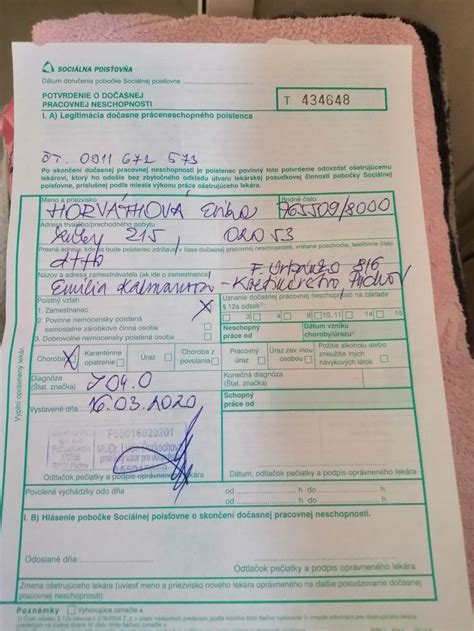 SOCIÁLNA POISŤOVŇA
Dátum doručenia pobočke Sociálnej poisťovne
POTVRDENIE O DOČASNEJ
PRACOVNEJ NESCHOPNOSTI
T 434648
I. A) Legitimácia dočasne práceneschopného poistenca
čt. 0911 672 573
Po skončení dočasnej pracovnej neschopnosti je poistenec povinný toto potvrdenie odovzdať ošetrujúcemu
lekárovi, ktorý ho odošle bez zbytočného odkladu útvaru lekárskej posudkovej činnosti pobočky Sociálnej
poisťovne, príslušnej podľa miesta výkonu práce ošetrujúceho lekára.
Meno a priezvisko
Rodné číslo
HORVÁTHOVÁ Erika 765509/8000
Adresa trvalého/prechodného pobytu
215 020 53
Presná adresa, kde sa bude poistenec zdržiavať v čase dočasnej pracovnej neschopnosti, vrátane poschodia, telefónne číslo
Názov a adresa zamestnávateľa (ak ide o zamestnanca)
Emília 816 Púchov
Poistný vzťah
1. Zamestnanec X
2. Povinne nemocensky poistená
samostatne zárobkovo činná osoba
3. Dobrovoľne nemocensky poistená osoba
Uznanie dočasnej pracovnej neschopnosti na základe
§ 12a odsek
3 4 9 10, 11 14 15
Neschopný
práce od
Dátum vzniku
choroby/úrazu
Choroba X
Karanténne
opatrenie
Úraz
Choroba z
povolania
Pracovný
úraz
Úraz zav. inou
osobou
Požitie alkoholu alebo
zneužitie iných
návykových látok
Diagnóza
(Štat. značka)
J04.0
Konečná diagnóza
(Štat. značka)
Vystavené dňa 16.03.2020
Schopný
práce od
P59016020201
MUDr.
Odtlačok pečiatky a podpis oprávneného lekára
Dátum, odtlačok pečiatky a podpis oprávneného lekára
Povolené vychádzky odo dňa
od h do h
od h do h
Vyplní oprávnený lekár.
I. B) Hlásenie pobočke Sociálnej poisťovne o skončení dočasnej pracovnej neschopnosti.
Odoslané dňa
Odtlačok pečiatky a podpis oprávneného lekára
Zmena ošetrujúceho lekára (uviesť meno a priezvisko nového lekára oprávneného na ďalšie posudzovanie dočasnej
pracovnej neschopnosti).
Poznámky
Vyhovujúce označte x.